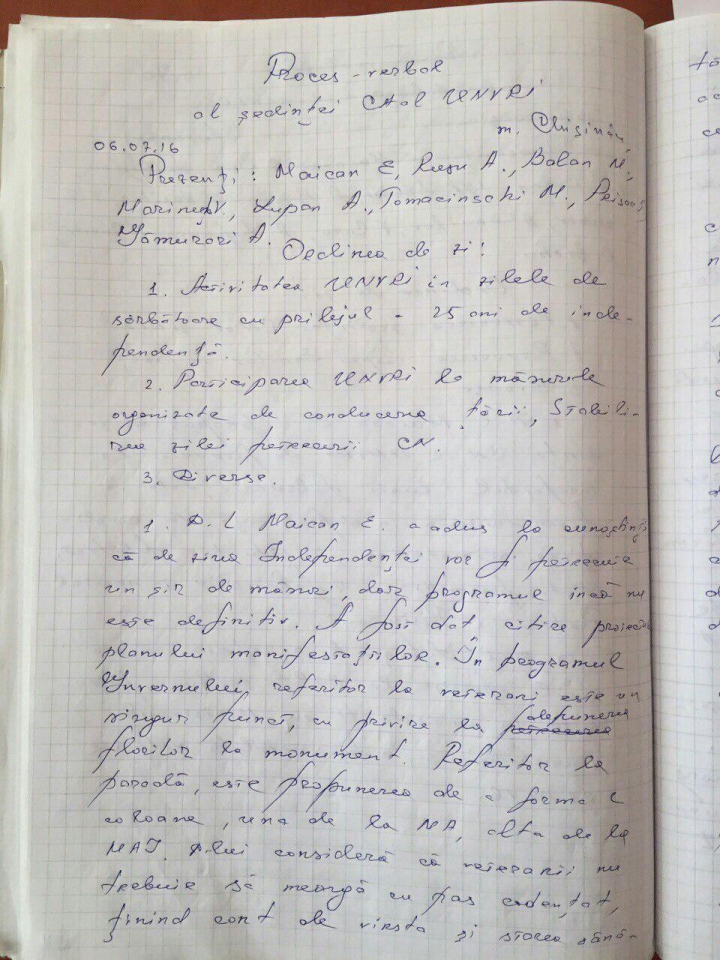 Proces-verbal
al ședinței CA al UNVRI
m. Chișinău
06.07.16
Prezenți: Maican E, Rusu A., Balan M.,
Marin, Lupan A., Tomacinschi M.,
A.
Ordinea de zi:
1. Activitatea UNVRI in zilele de
sărbătoare cu prilejul - 25 ani de inde-
pendență.
2. Participarea UNVRI la măsurile
organizate de conducerea țării, Stabili-
rea zilei petrecerii CN.
3. Diverse.
1. D. L Maican E. a adus la cunoștință
că de ziua Independenței vor fi petrecute
un șir de măsuri, dar programul incă nu
este definitiv. A fost dat citirii proiectul
planului manifestațiilor. În programul
Guvernului, referitor la veterani este un
singur punct, cu privire la depunerea
florilor la monument. Referitor la
paradă, este propunerea de a forma 2
coloane, una de la MA, alta de la
MAI. D-lui consideră că veteranii nu
trebuie să meargă cu pas cadențat,
ținind cont de virsta și starea sănă-